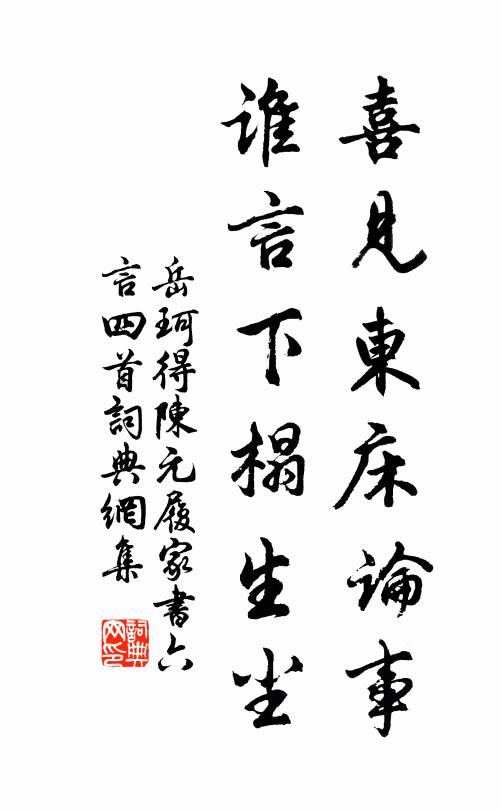 喜見東床論事
誰言下榻生尘
岳珂得陳元履家書六
言四首詞典網集
詞典
网印